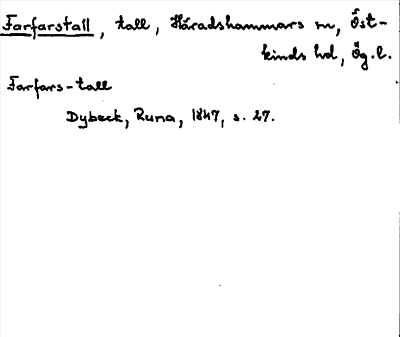 Farfarstall, tall, Häradshammars sn, Öst-
kinds hd, Ög.l.
Farfars-tall
Dybeck, Runa, 1847, s. 27.